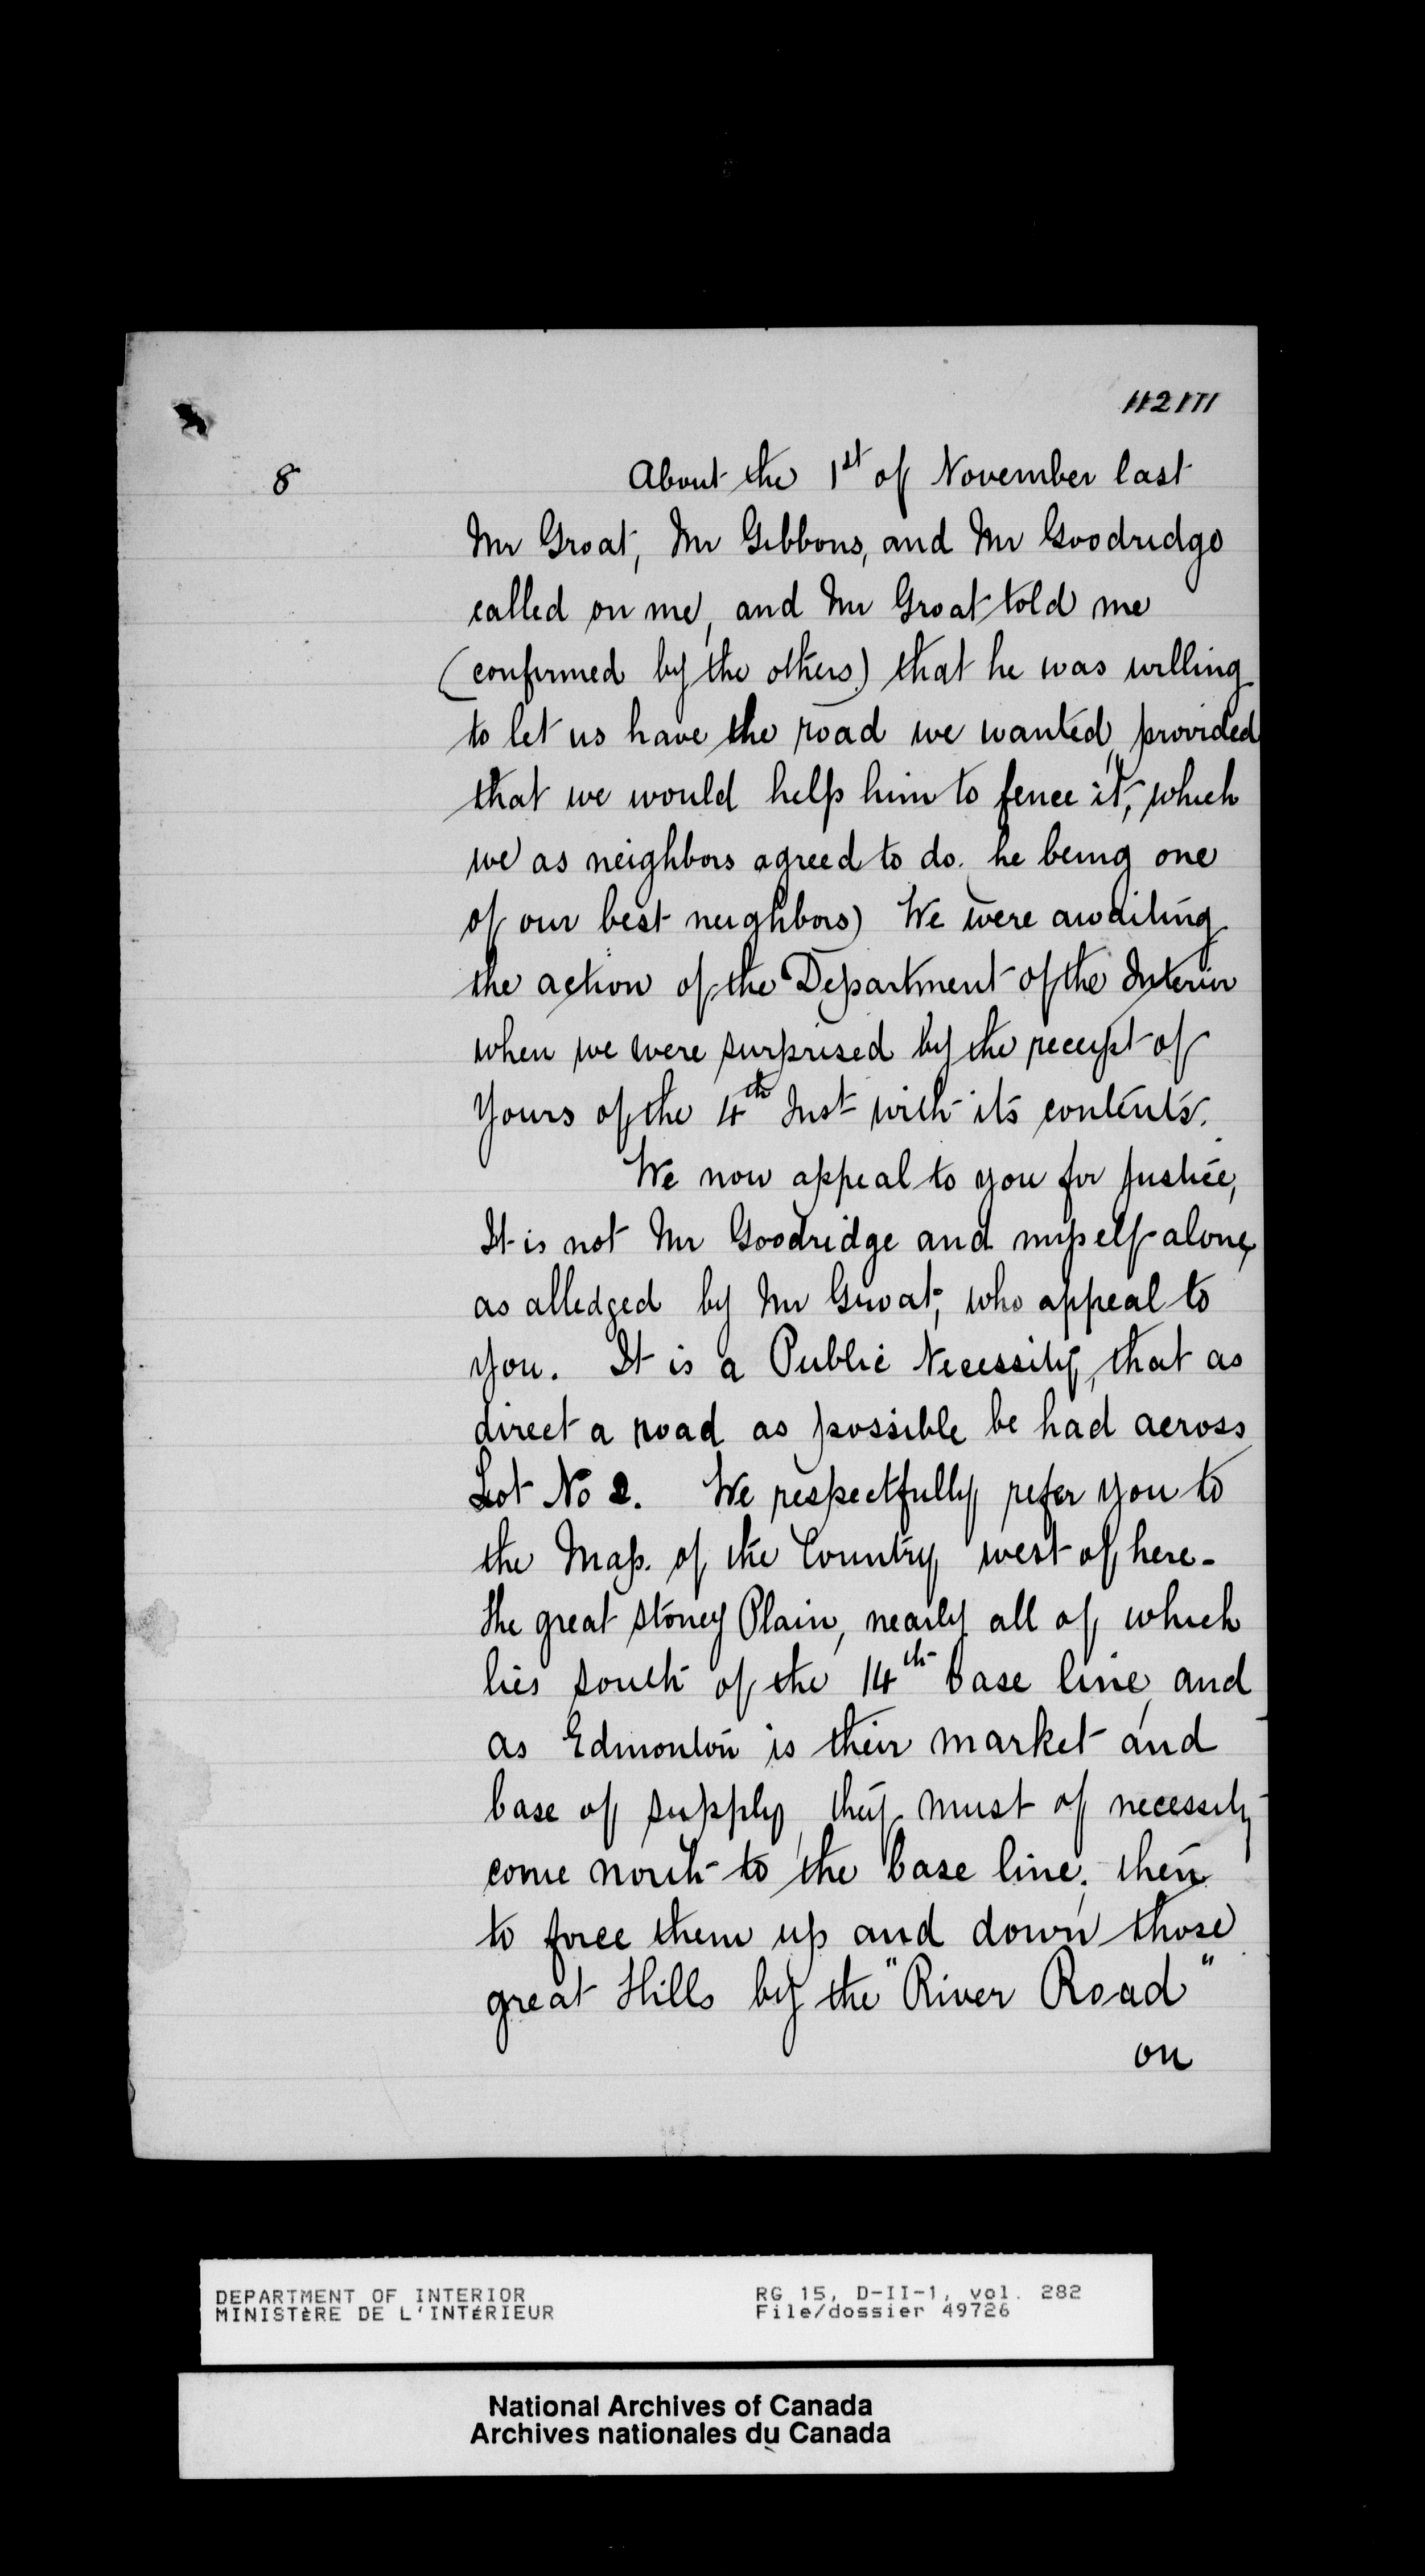 112171
8
About the 1st of November last
Mr Groat, Mr Gibbons, and Mr Goodridge
called on me, and Mr Groat told me
(confirmed by the others) that he was willing
to let us have the road we wanted, provided
that we would help him to fence it, which
we as neighbors agreed to do. he being one
of our best neighbors) We were awaiting
the action of the Department of the Interior
when we were surprised by the receipt of
Yours of the 4th Inst with its contents.
We now appeal to you for Justice,
It is not Mr Goodridge and myself alone,
as alledged by Mr Groat, who appeal to
you. It is a Public Necessity, that as
direct a road as possible be had across
Lot No 2. We respectfully refer you to
the Map. of the Country west of here-
The great Stoney Plain, nearly all of which
lies south of the 14th base line, and
as Edmonton is their market and
base of supply, they must of necessity
come north to the base line, then
to force them up and down those
great Hills by the "River Road"
on
DEPARTMENT OF INTERIOR
MINISTÈRE DE L'INTÉRIEUR
RG 15, D-II-1, vol. 282
File/dossier 49726
National Archives of Canada
Archives nationales du Canada